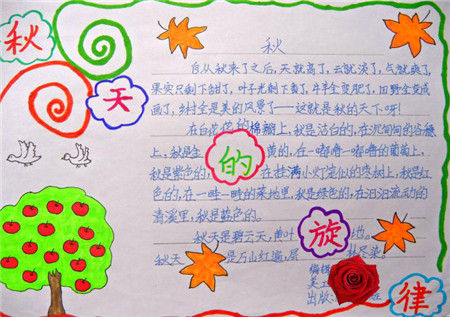 秋
天
的
旋
律
秋
自从秋来了之后,天就高了,云就淡了,气就爽了,
果实只剩下甜了,叶子光剩下黄了,牛羊全变肥了,田野全变成
画了,乡村全是美的风景了——这就是秋的天下呀!
在白花花的棉朝上,秋是洁白的,在沉甸甸的谷穗
上,秋是金 黄的,在一嘟噜一嘟噜的葡萄上,
秋是紫色的, 在挂满小灯笼似的枣树上,秋是红
色的,在一畦一畦的菜地里,秋是绿色的,在汩汩流动的
清溪里,秋是蓝色的。
秋天是碧云天,黄叶 地。
秋天 是万山红遍,层 林尽染。
编辑
美工
出版: